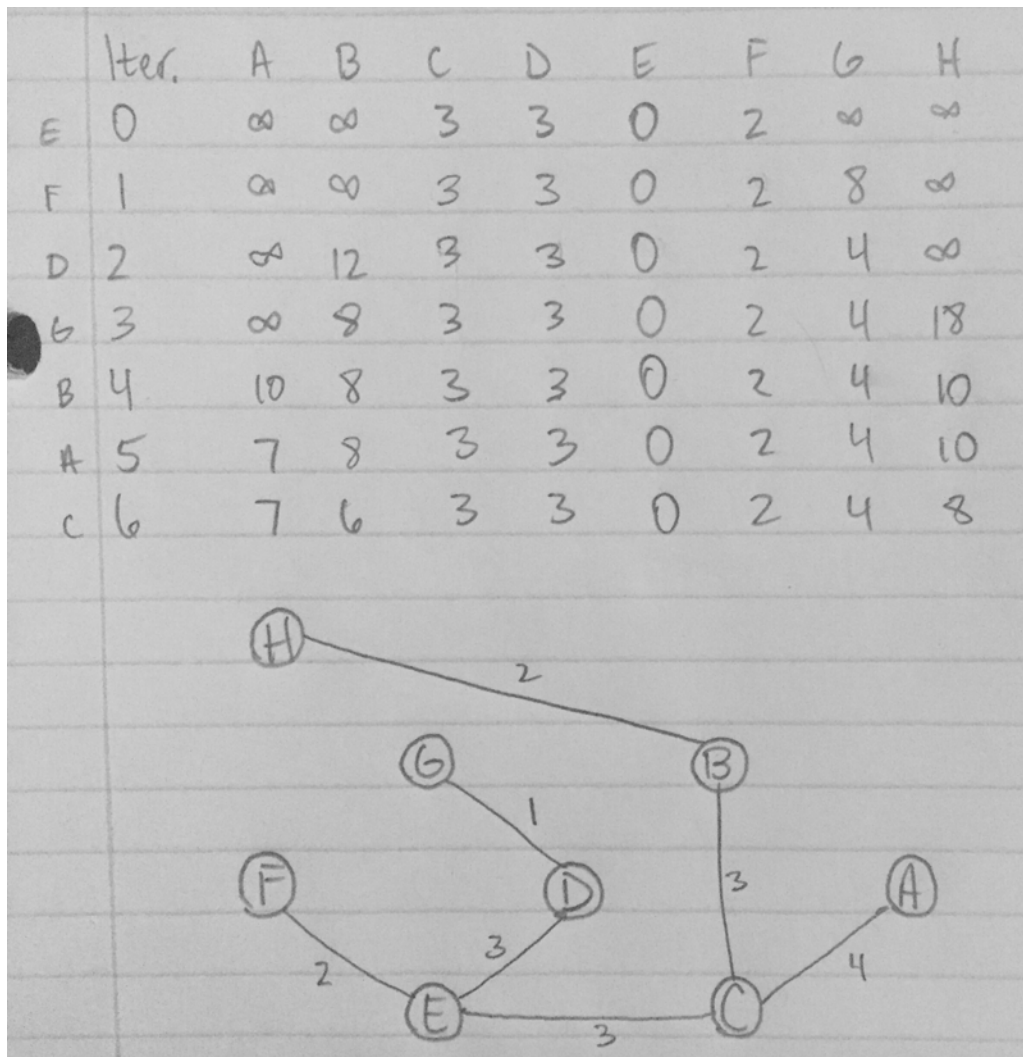 Iter. A B C D E F G H
E 0 ∞ ∞ 3 3 0 2 ∞ ∞
F 1 ∞ ∞ 3 3 0 2 8 ∞
D 2 ∞ 12 3 3 0 2 4 ∞
G 3 ∞ 8 3 3 0 2 4 18
B 4 10 8 3 3 0 2 4 10
A 5 7 8 3 3 0 2 4 10
C 6 7 6 3 3 0 2 4 8
H
2
G B
1
F D 3 A
3 4
2
E C
3